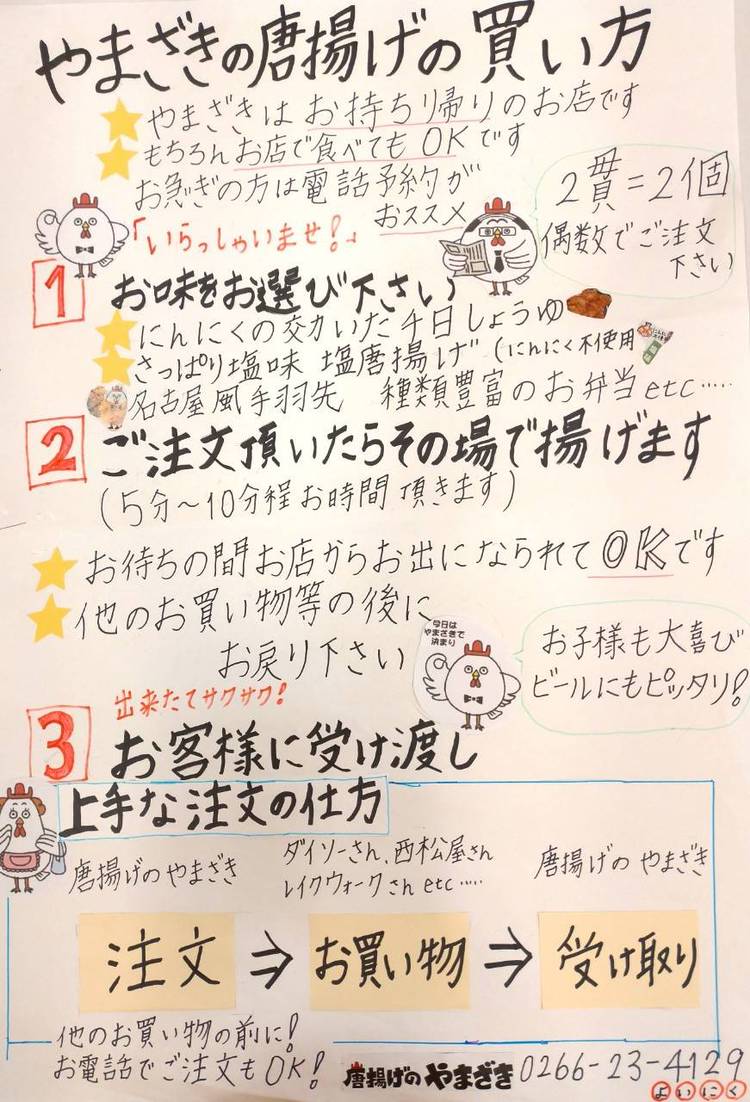 やまざきの唐揚げの買い方
やまざきはお持ち帰りのお店です
もちろんお店で食べてもOKです
お急ぎの方は電話予約が
おススメ
2貫=2個
偶数でご注文
下さい
「いらっしゃいませ!」
1 お味をお選び下さい
にんにくの効いた千日しょうゆ
さっぱり塩味 塩唐揚げ(にんにく不使用
名古屋風手羽先 種類豊富のお弁当etc……
2 ご注文頂いたらその場で揚げます
(5分～10分程お時間頂きます)
お待ちの間お店からお出になられてOKです
他のお買い物等の後に
お戻り下さい
今日は
やまざきで
決まり
お子様も大喜び
ビールにもピッタリ!
出来たてサクサク!
3 お客様に受け渡し
上手な注文の仕方
唐揚げのやまざき
ダイソーさん、西松屋さん
レイクウォークさんetc……
唐揚げのやまざき
注文⇒お買い物⇒受け取り
他のお買い物の前に!
お電話でご注文もOK!
唐揚げのやまざき 0266-23-4129
よいにく